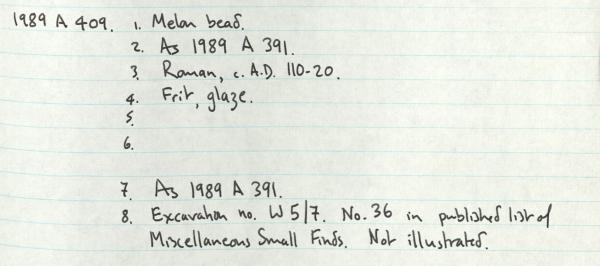 1989 A 409. 1. Melon bead.
2. As 1989 A 391.
3. Roman, c. A.D. 110-20.
4. Frit, glaze.
5.
6.
7. As 1989 A 391.
8. Excavation no. W 5/7. No. 36 in published list of
Miscellaneous Small Finds. Not illustrated.